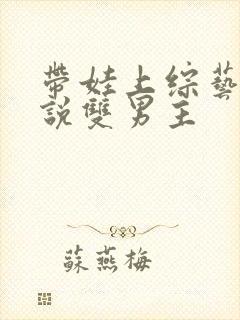 帶娃上综藝
說雙男主
蘇燕梅